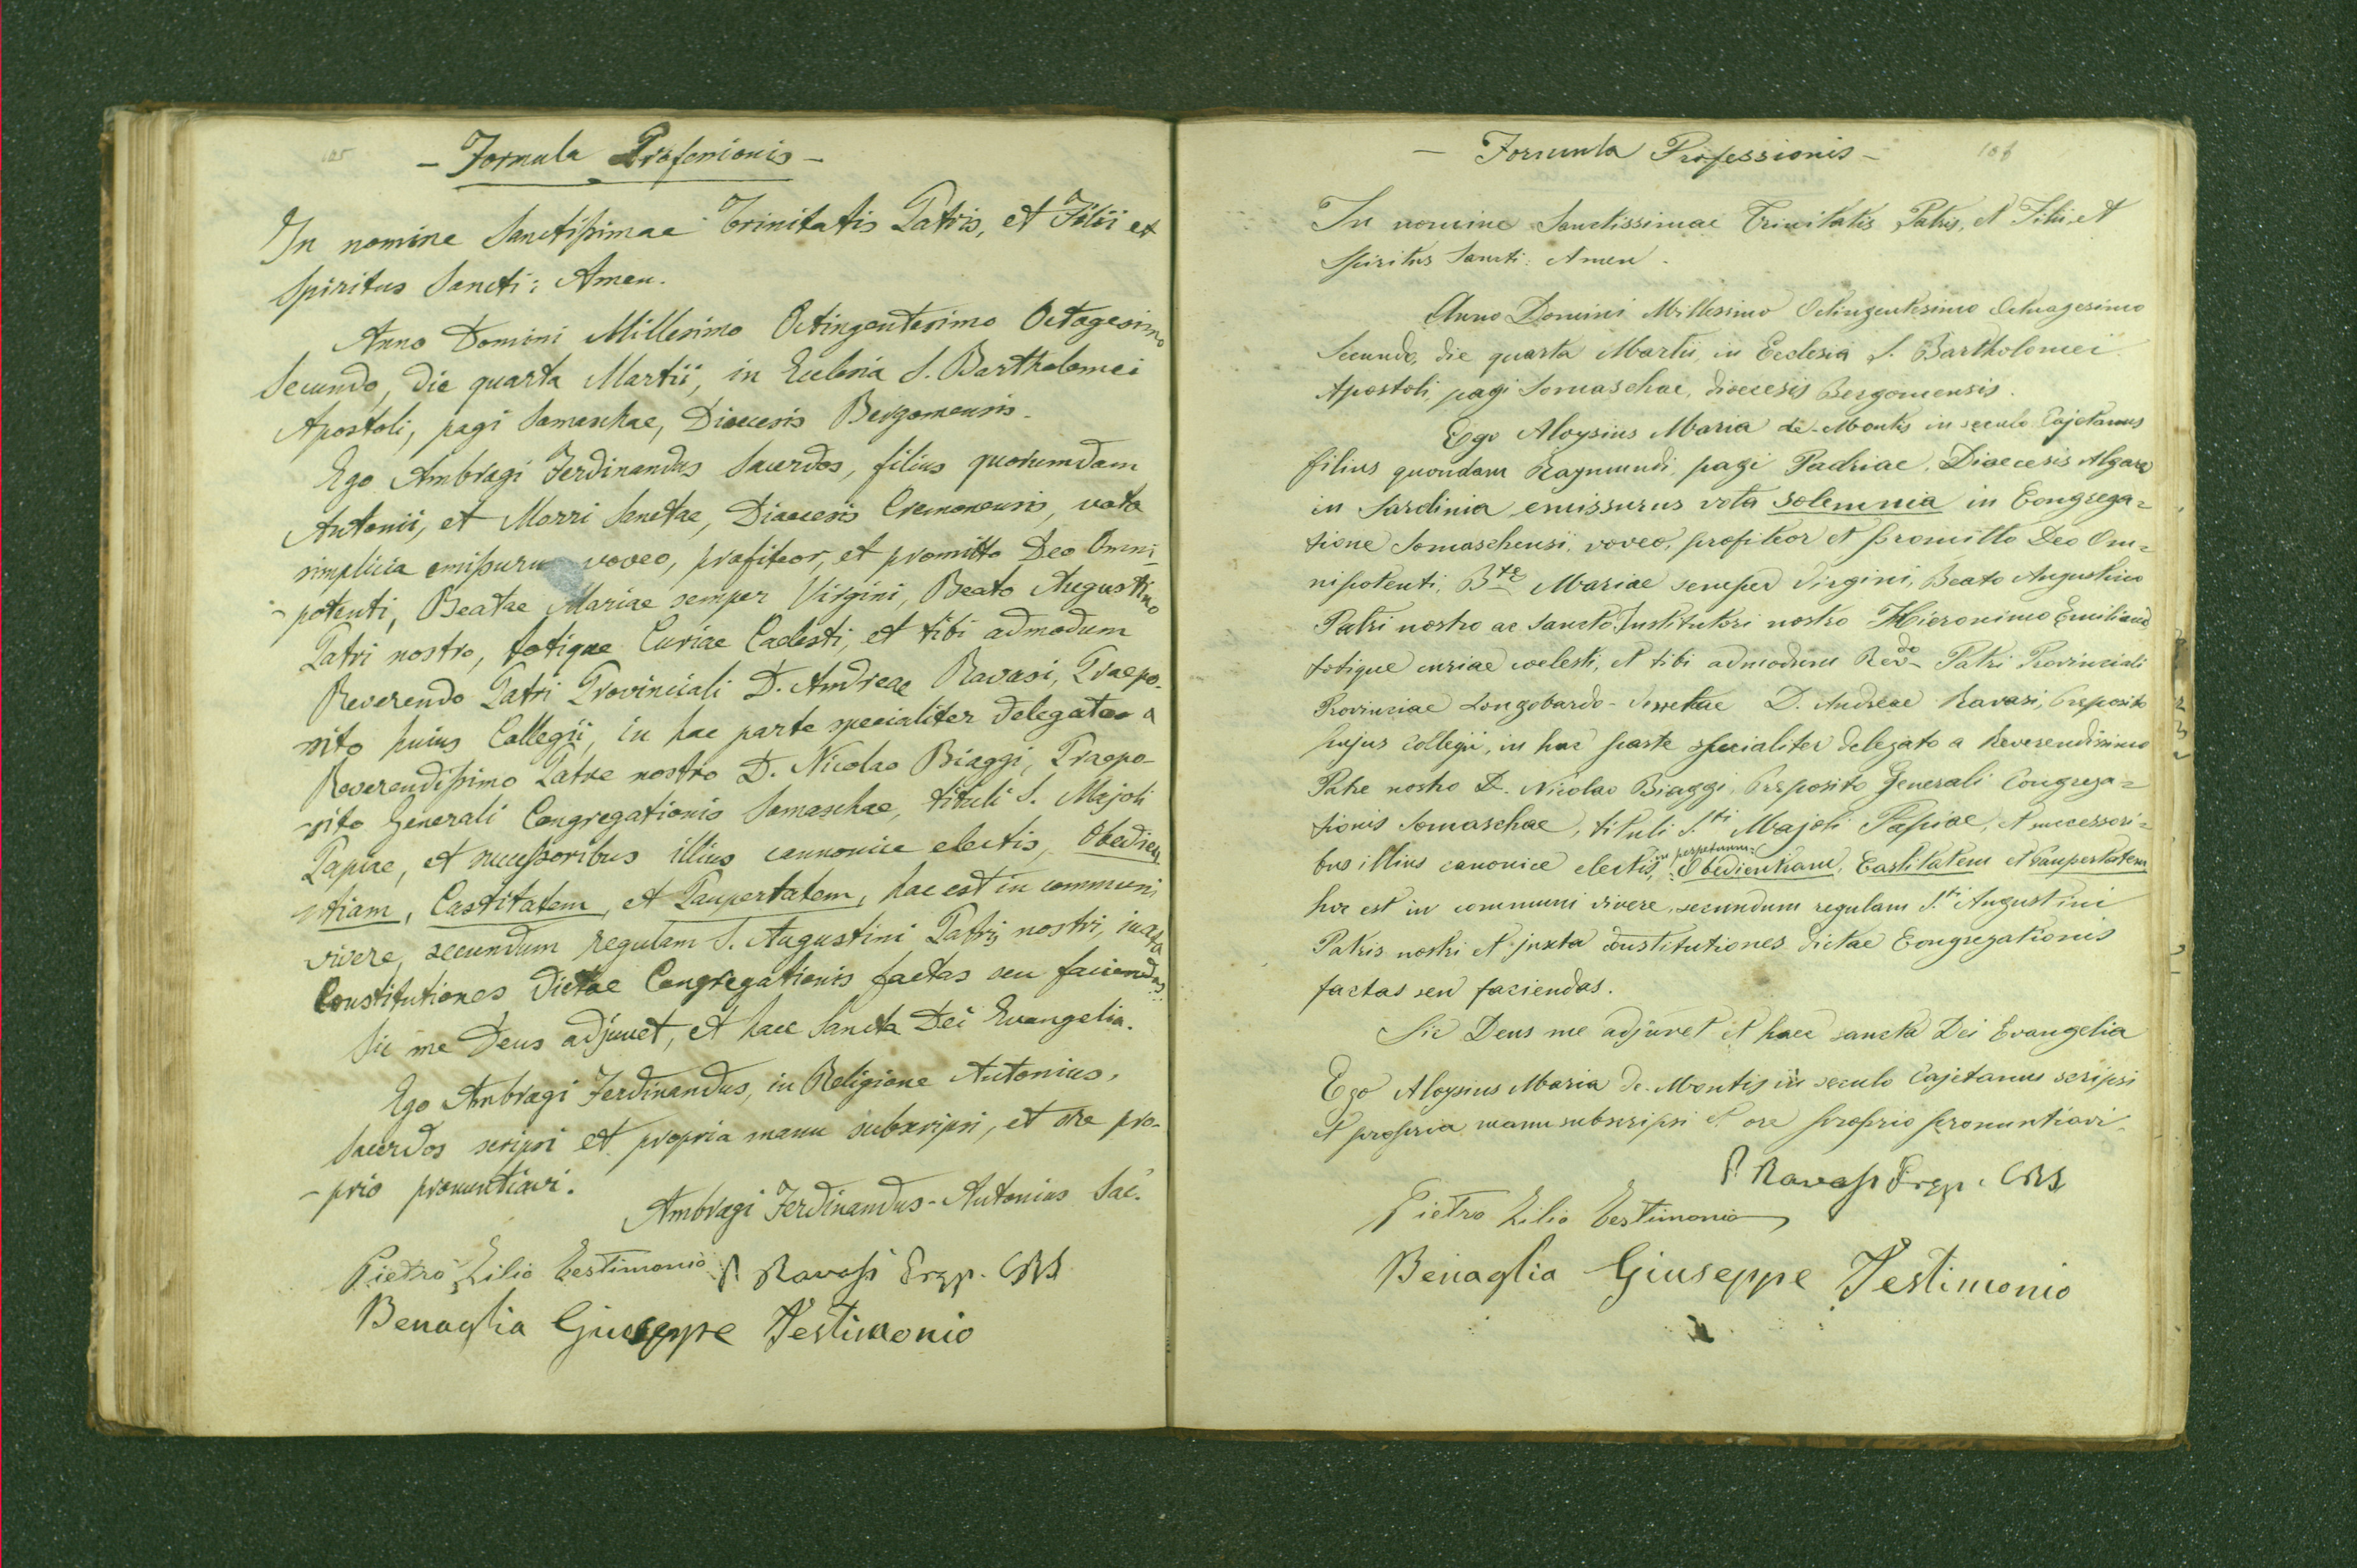 105
- Formula Professionis -
In nomine Sanctissimae Trinitatis Patris, et Filii et
Spiritus Sancti: Amen.
Anno Domini Millesimo Octingentesimo Octagesimo
Secundo, die quarta Martii, in Ecclesia S. Bartholomei
Apostoli, pagi Somaschae, Dioecesis Bergomensis.
Ego Ambragi Ferdinandus Sacerdos, filius quorumdam
Antonii, et Morri Sanctae, Dioecesis Cremonensis, vota
simplicia emissuru voveo, profiteor, et promitto Deo Omni-
-potenti, Beatae Mariae semper Virgini, Beato Augustino
Patri nostro, totique Curiae Caelesti, et tibi admodum
Reverendo Patri Provinciali D. Andreae Ravasi, Praepo-
-sito huius Collegii, in hac parte specialiter delegato a
Reverendissimo Patre nostro D. Nicolao Biaggi, Praepo-
-sito Generali Congregationis Somaschae, tituli S. Majoli
Papiae, et successoribus illius cannonice electis, Obedien
-tiam, Castitatem, et Paupertatem, hac est in communi
vivere, secundum regulam S. Augustini Patris nostri, iuxta
Constitutiones dictae Congregationis factas seu faciendas:
Sic me Deus adjuvet, et haec Sancta Dei Evangelia.
Ego Ambragi Ferdinandus, in Religione Antonius,
Sacerdos scripsi et propria manu subscripsi, et ore pro-
-prio pronuntiavi.
Ambragi Ferdinandus-Antonius Sac.
Pietro Zilio Testimonio P. Ravasi Prep. CRS
Benaglia Giuseppe Testimonio
106
- Formula Professionis -
In nomine Sanctissimae Trinitatis Patris, et Filii, et
Spiritus Sancti: Amen.
Anno Domini Millessimo Octingentesimo Octuagesimo
Secundo, die quarta Martii, in Ecclesia S. Bartholomei
Apostoli, pagi Somaschae, dioecesis Bergomensis.
Ego Aloysius Maria de-Montis in seculo Cajetanus
filius quondam Raymundi, pagi Padriae, Dioecesis Algare
in Sardinia emissurus vota solemnia in Congrega=
tione Somaschensi, voveo, profiteor et promitto Deo Om=
nipotenti, Btae Mariae semper Virgini, Beato Augustino
Patri nostro ac Sancto Institutori nostro Hieronimo Emiliano,
totique curiae coelesti, et tibi admodum Revdo Patri Provinciali
Provinciae Longobardo-Venetae D. Andreae Ravasi, Preposito
hujus collegii, in hac parte specialiter delegato a Reverendissimo
Patre nostro D. Nicolao Biaggi, Preposito Generali Congrega=
tionis Somaschae, tituli S.ti Majoli Papiae, et successori=
bus illius canonice electis, in perpetuum: Obedientiam, Castitatem et Paupertatem
hoc est in communi vivere, secundum regulam S.ti Augustini
Patris nostri et juxta constitutiones dictae Congregationis
factas seu faciendas.
Sic Deus me adjuvet et haec sancta Dei Evangelia
Ego Aloysius Maria de-Montis in seculo Cajetanus scripsi
et propria manu subscripsi et ore proprio pronuntiavi.
P. Ravasi Prep. CRS
Pietro Zilio Testimonio
Benaglia Giuseppe Testimonio